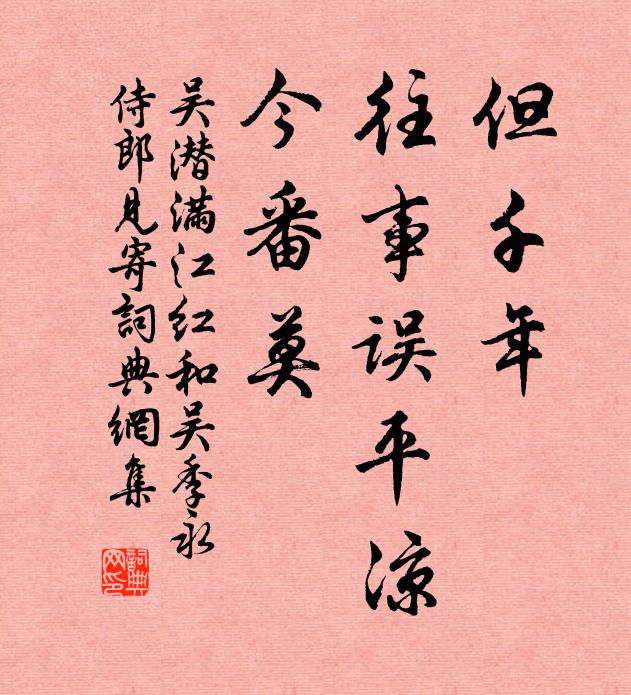 但千年
往事误平凉
今番莫
吴潜满江红和吴季永
侍郎见寄詞典網集
詞典
网印